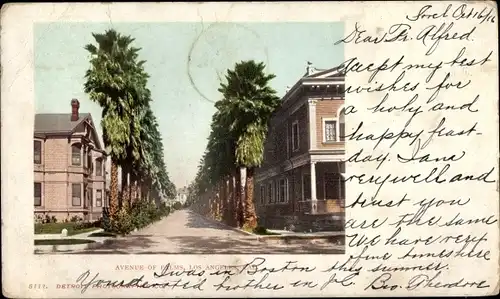 Torel Oct 16/16
Dear Fr. Alfred.
Accept my best
wishes for
a holy and
happy feast-
day. I am
very well and
trust you
are the same
We have very
fine
this summer.
I was in Boston
Yours
brother in
Bro. Theodore
AVENUE OF PALMS, LOS ANGELES
DETROIT